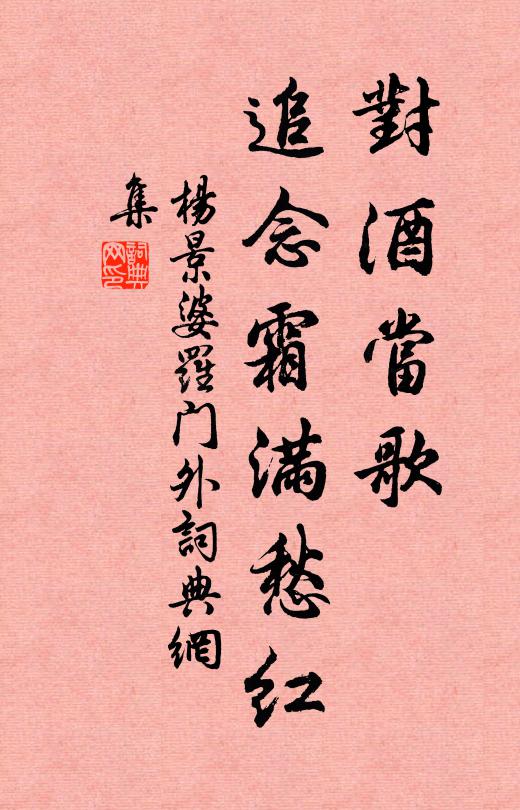 對酒當歌
追念霜滿愁紅
楊景婆羅门外詞典網
集
詞典网印